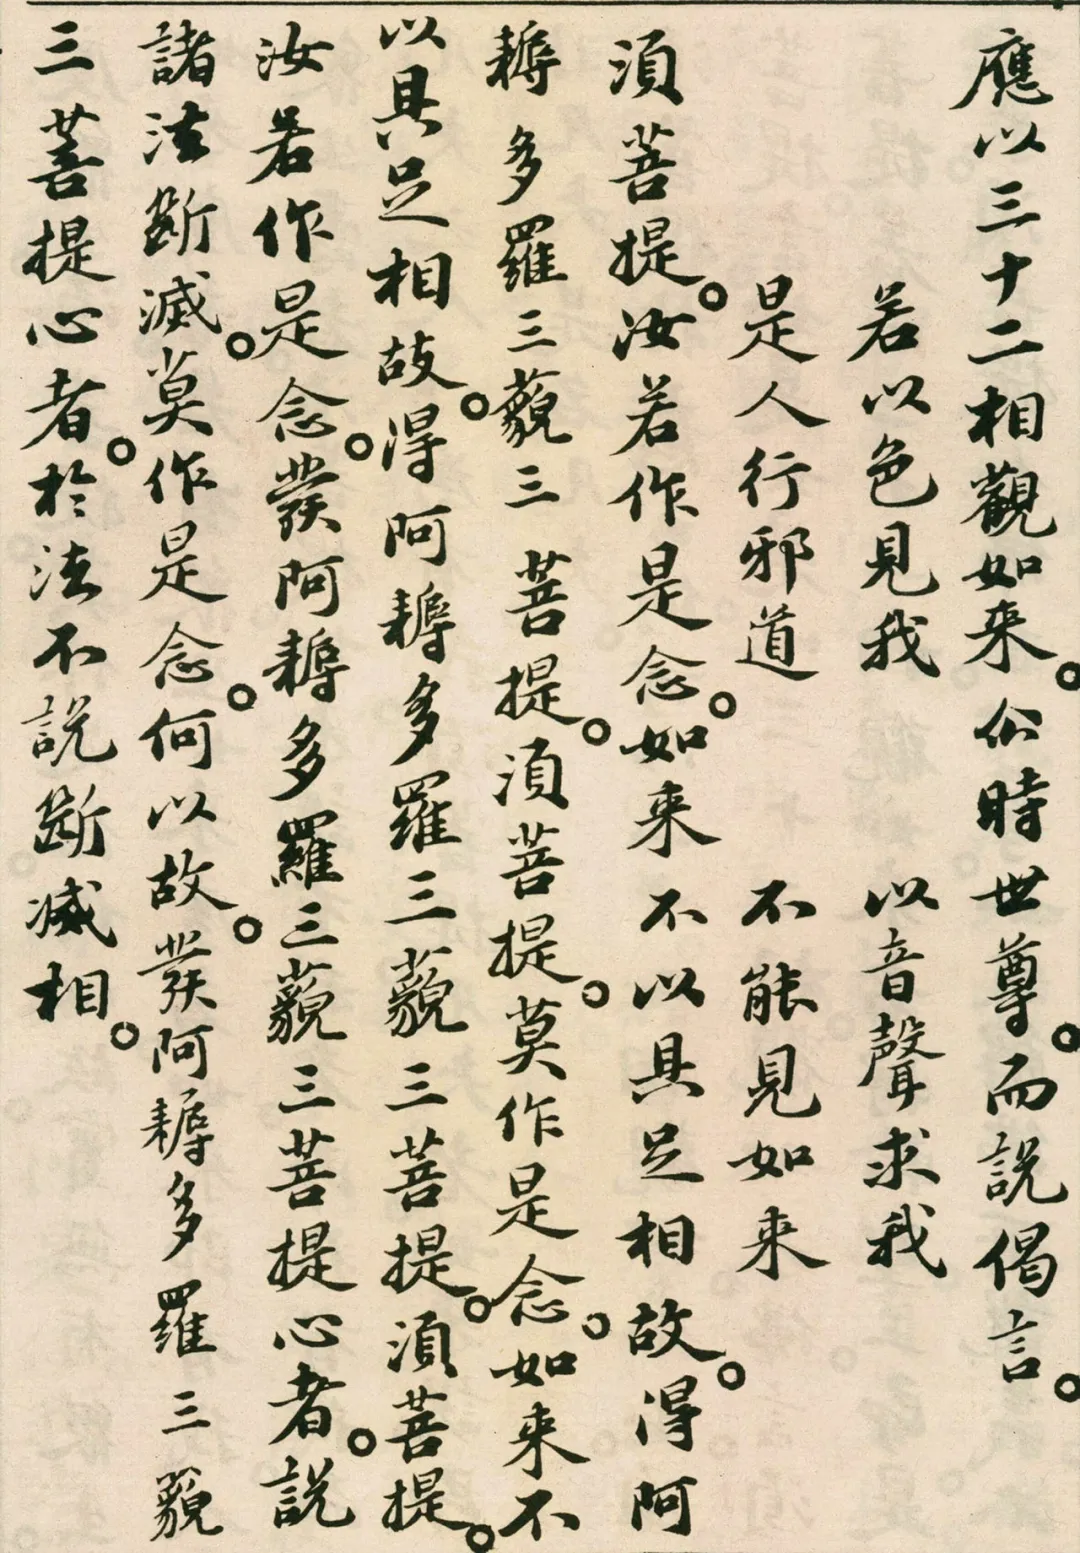 應以三十二相觀如来。尒時世尊。而説偈言。
若以色見我 以音聲求我
是人行邪道 不能見如来
湏菩提。汝若作是念。如来不以具足相故。得阿
耨多羅三藐三菩提。湏菩提。莫作是念。如来不
以具足相故。得阿耨多羅三藐三菩提。湏菩提。
汝若作是念。發阿耨多羅三藐三菩提心者。説
諸法斷滅。莫作是念。何以故。發阿耨多羅三藐
三菩提心者。於法不説斷滅相。